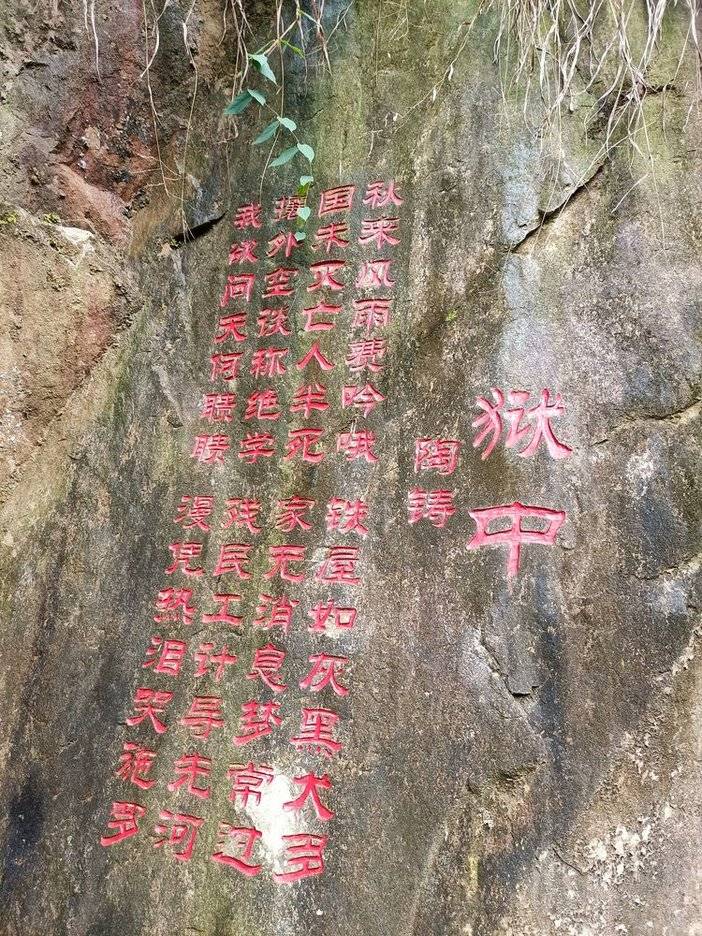 狱中
陶铸
秋来风雨费吟哦 铁屋如灰黑犬多
国未灭亡人半死 家无消息梦常过
攘外空谈称绝学 残民工计导先河
我欲问天何聩聩 漫凭热泪哭施多